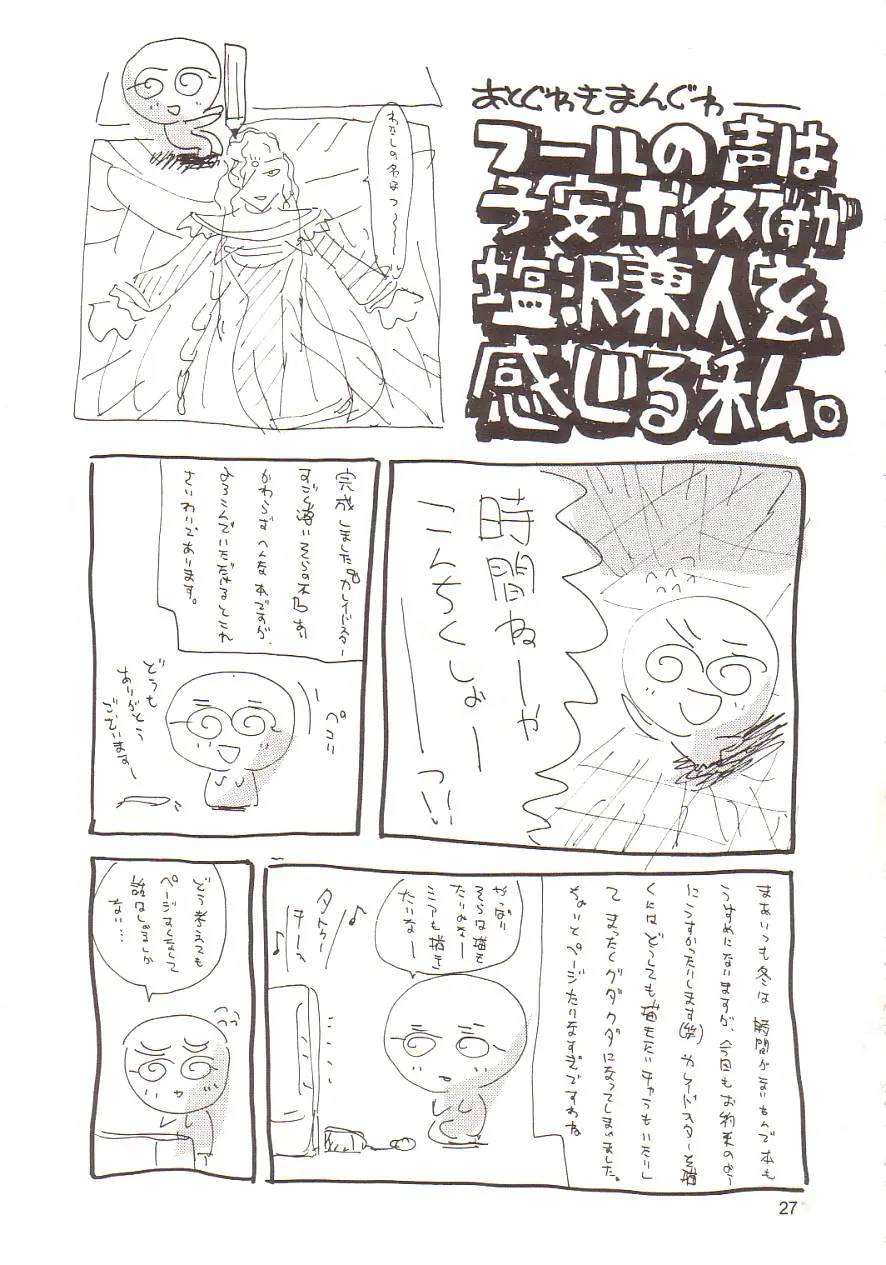 あとぐわきまんぐわ——
フールの声は
子安ボイスですが
塩沢兼人を
感じる私。
わたしの名はっ〜〜〜
時間ねーや
こんちくしょーーっ!!
完成しました。カレイドスター
すごく薄い
かわらずへんな本ですが、
よろこんでいただけるとこれ
さいわいであります。
ペコリ
どうも
ありがとう
ございますー
まあいつも冬は時間がないもんで本も
うすめになりますが、今回もお約束のよー
にうすかったりします(笑)カレイドスターを描
くにはどうしても描きたいキャラもいたりし
てまったくグダグダになってしまいました。
ちょいとページたりなすぎですわね
やっぱり
そらは描き
たいよなー
ミアも描き
たいなー
♪
♪
どう考えても
ページすくなくて
話はしょるしか
ない…
27